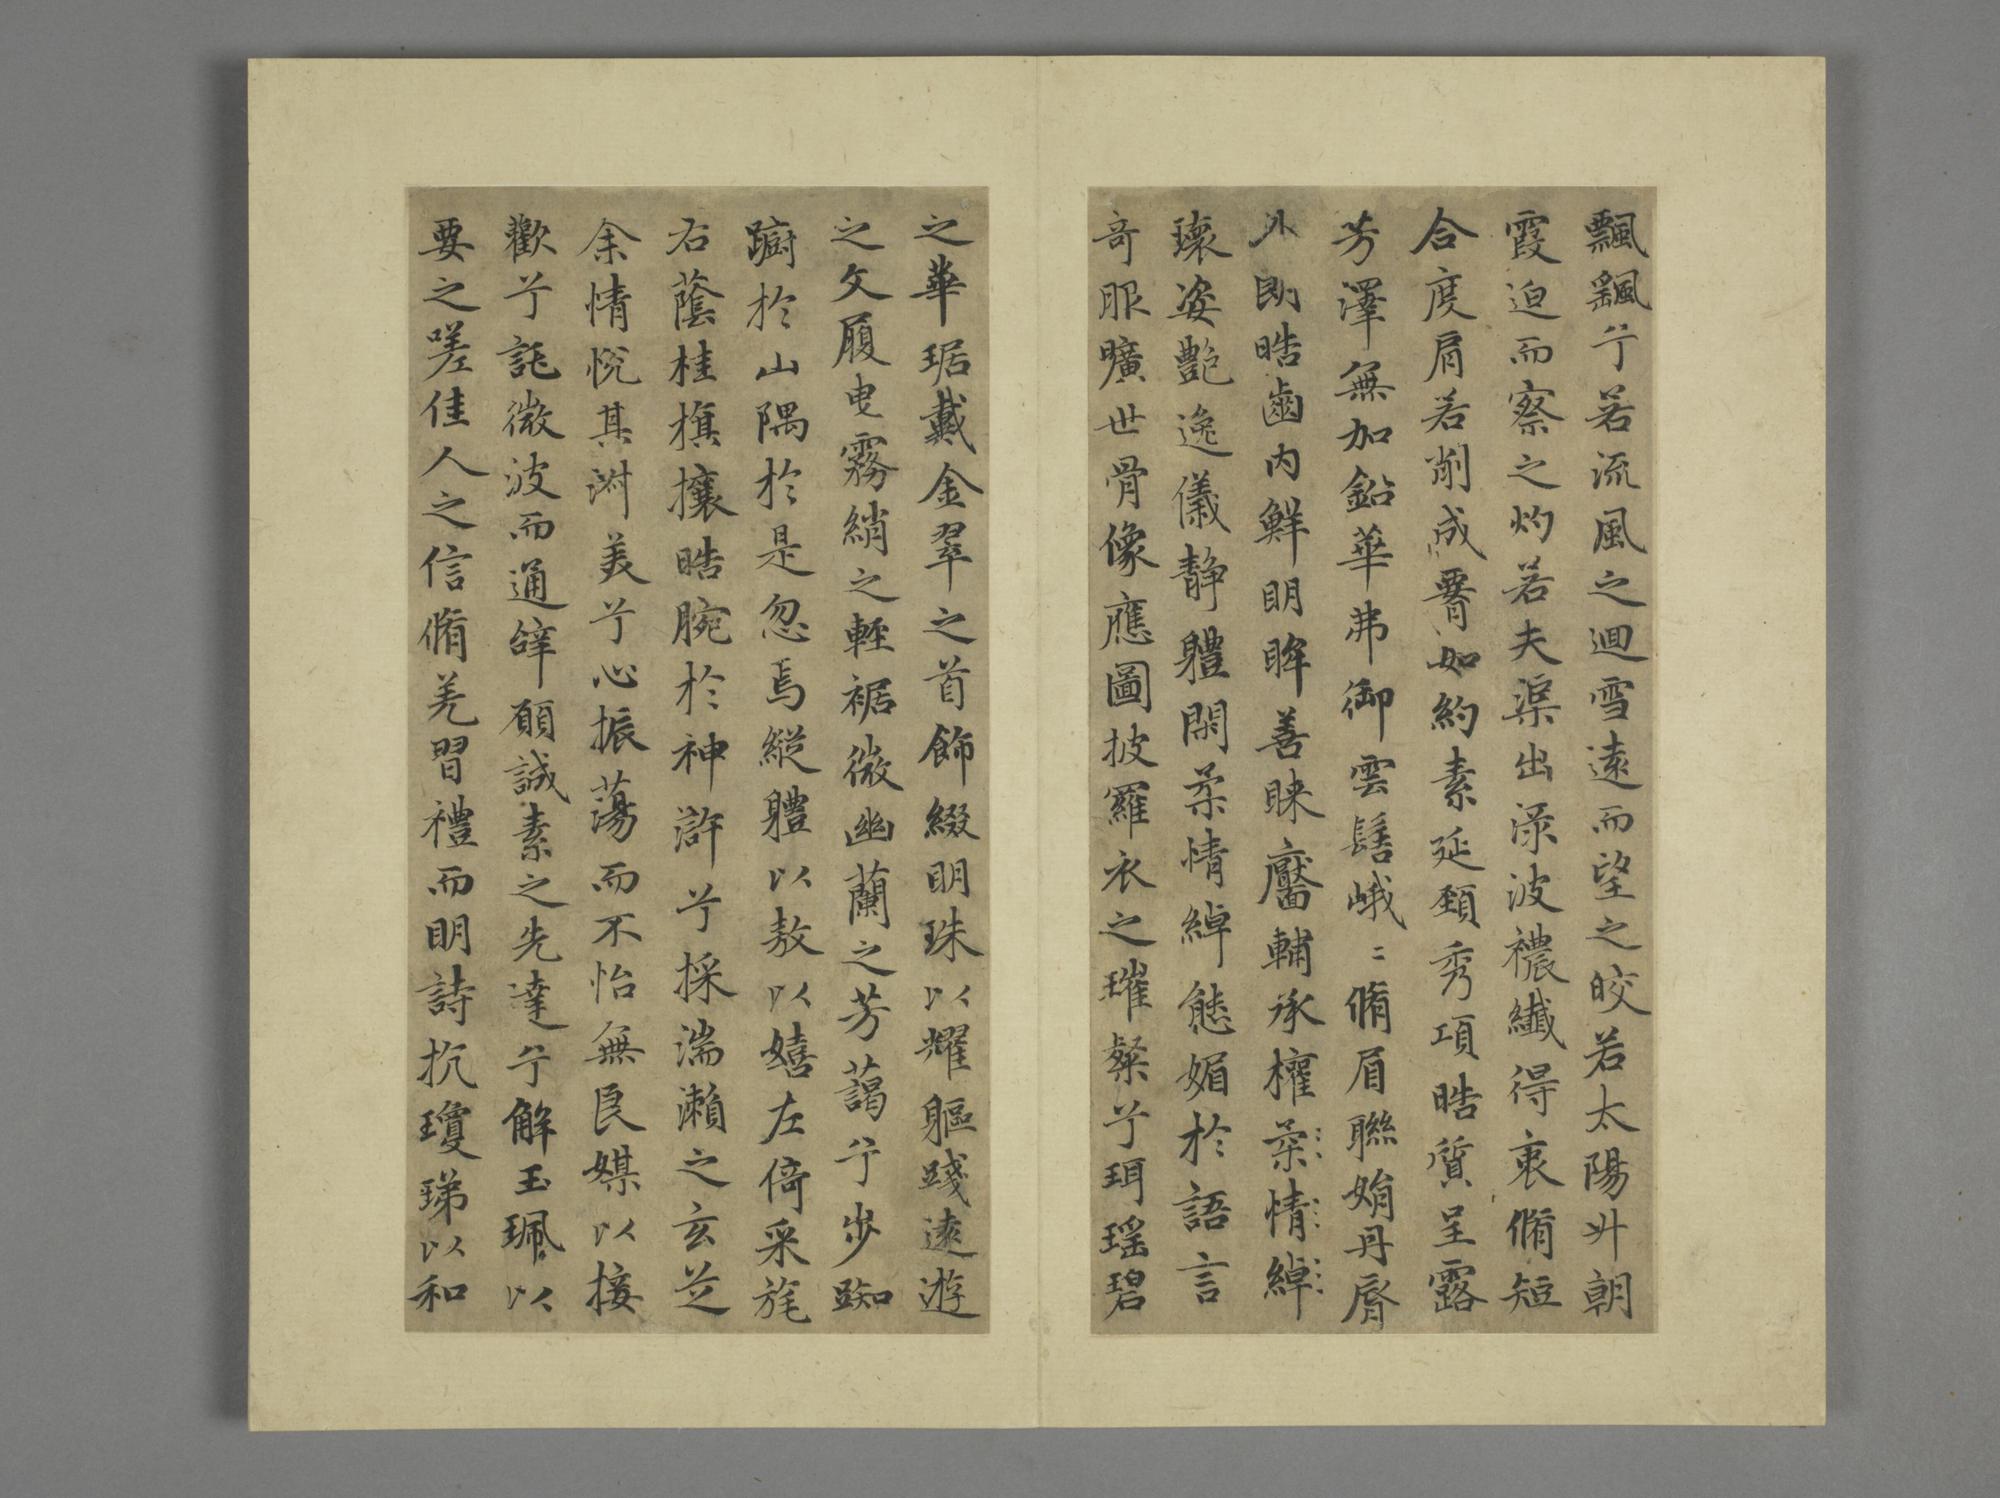 飄飖兮若流風之迴雪遠而望之皎若太陽升朝
霞迫而察之灼若夫渠出淥波襛纖得衷脩短
合度肩若削成腰如約素延頸秀項皓質呈露
芳澤無加鉛華弗御雲髻峨〻脩眉聯娟丹脣
外朗皓齒內鮮明眸善睞靨輔承權柔情綽
瓌姿艷逸儀靜軆閑柔情綽態媚於語言
奇服曠世骨像應圖披羅衣之璀粲兮珥瑶碧
之華琚戴金翠之首飾綴明珠以耀軀踐遠遊
之文履曳霧綃之輕裾微幽蘭之芳藹兮步踟
躕於山隅於是忽焉縱軆以敖以嬉左倚采旄
右蔭桂旗攘皓腕於神滸兮採湍瀨之玄芝
余情悅其淑美兮心振蕩而不怡無良媒以接
歡兮託微波而通辭願誠素之先達兮解玉珮以
要之嗟佳人之信脩羌習禮而明詩抗瓊珶以和